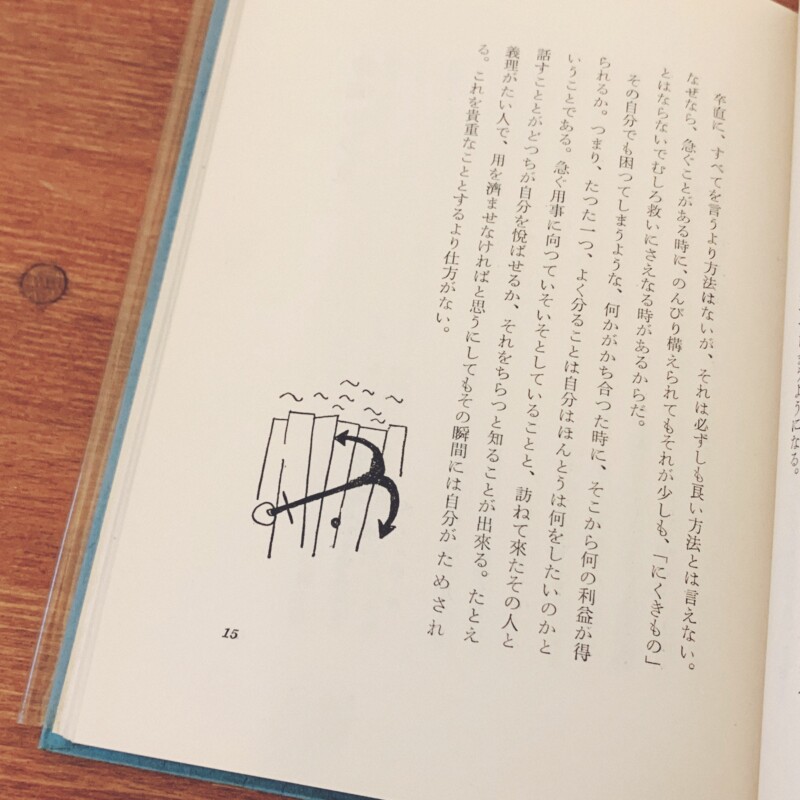 卒直に、すべてを言うより方法はないが、それは必ずしも良い方法とは言えない。
なぜなら、急ぐことがある時に、のんびり構えられてもそれが少しも、「にくきもの」
とはならないでむしろ救いにさえなる時があるからだ。
その自分でも困つてしまうような、何かがかち合つた時に、そこから何の利益が得
られるか。つまり、たつた一つ、よく分ることは自分はほんとうは何をしたいのかと
いうことである。急ぐ用事に向つていそいそとしていることと、訪ねて來たその人と
話すこととがどつちが自分を悦ばせるか、それをちらつと知ることが出來る。たとえ
義理がたい人で、用を濟ませなければと思うにしてもその瞬間には自分がためされ
る。これを貴重なこととするより仕方がない。
15
ようになる。